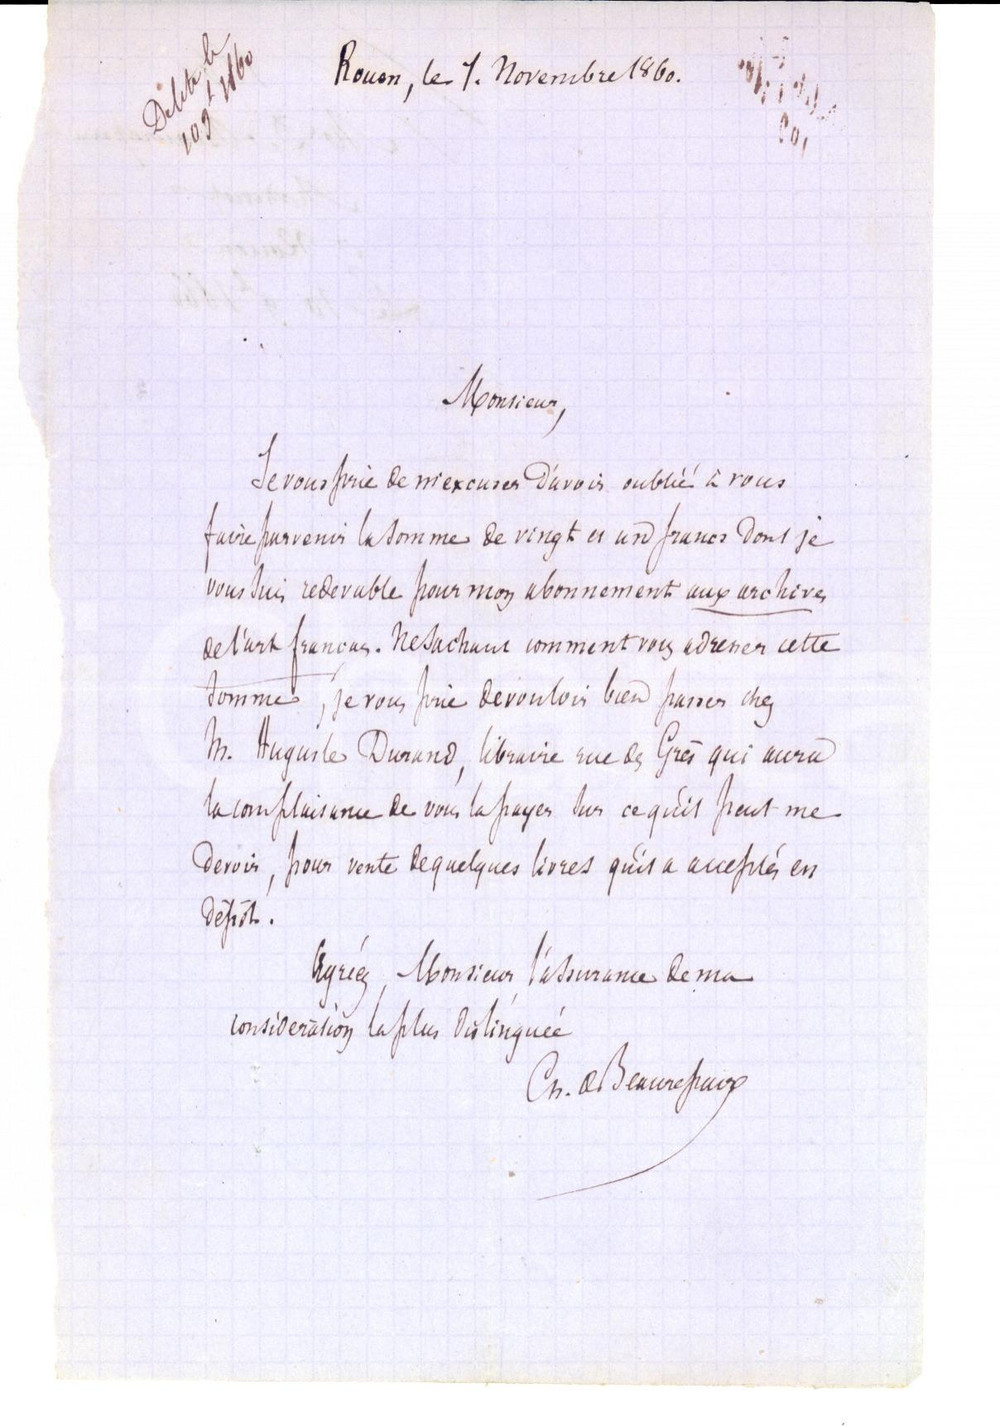 Débité le
10 9b 1860
Rouen, le 7. Novembre 1860.
Monsieur,
Je vous prie de m'excuser d'avoir oublié à vous
faire parvenir la somme de vingt et un francs dont je
vous suis redevable pour mon abonnement aux archives
de l'art français. Ne sachant comment vous adresser cette
somme, je vous prie de vouloir bien passer chez
M. Auguste Durand, libraire rue des Grès qui aura
la complaisance de vous la payer sur ce qu'il peut me
devoir, pour vente de quelques livres qu'il a acceptés en
dépôt.
Agréez, Monsieur l'assurance de ma
considération la plus distinguée
Ch. de Beaurepaire